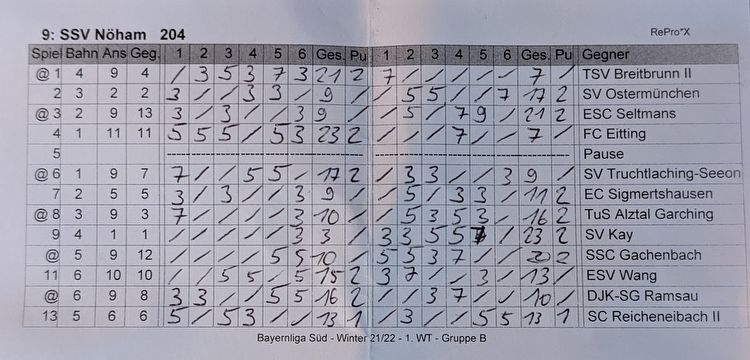 9: SSV Nöham 204 RePro*X
Spiel Bahn Ans Geg. 1 2 3 4 5 6 Ges. Pu 1 2 3 4 5 6 Ges. Pu Gegner
@ 1 4 9 4 / 3 5 3 7 3 21 2 7 / / / / / 7 / TSV Breitbrunn II
2 3 2 2 3 / / 3 3 / 9 / / 5 5 / / 7 17 2 SV Ostermünchen
@ 3 2 9 13 3 / 3 / / 3 9 / / 5 / 7 9 / 21 2 ESC Seltmans
4 1 11 11 5 5 5 / 5 3 23 2 / / / 7 / / 7 / FC Eitting
5 Pause
@ 6 1 9 7 7 / / 5 5 / 17 2 / 3 3 / / 3 9 / SV Truchtlaching-Seeon
7 2 5 5 3 / 3 / / 3 9 / / 5 / 3 3 / 11 2 EC Sigmertshausen
@ 8 3 9 3 7 / / / / 3 10 / / 5 3 5 3 / 16 2 TuS Alztal Garching
9 4 1 1 / / / / / 3 3 / 3 3 5 5 7 / 23 2 SV Kay
@ 5 9 12 / / / / 5 5 10 / 5 5 3 7 / / 20 2 SSC Gachenbach
11 6 10 10 / / 5 5 / 5 15 2 3 7 / / 3 / 13 / ESV Wang
@ 6 9 8 3 3 / / 5 5 16 2 / / 3 7 / / 10 / DJK-SG Ramsau
13 5 6 6 5 / 5 3 / / 13 1 / 3 / / 5 5 13 1 SC Reicheneibach II
Bayernliga Süd - Winter 21/22 - 1. WT - Gruppe B